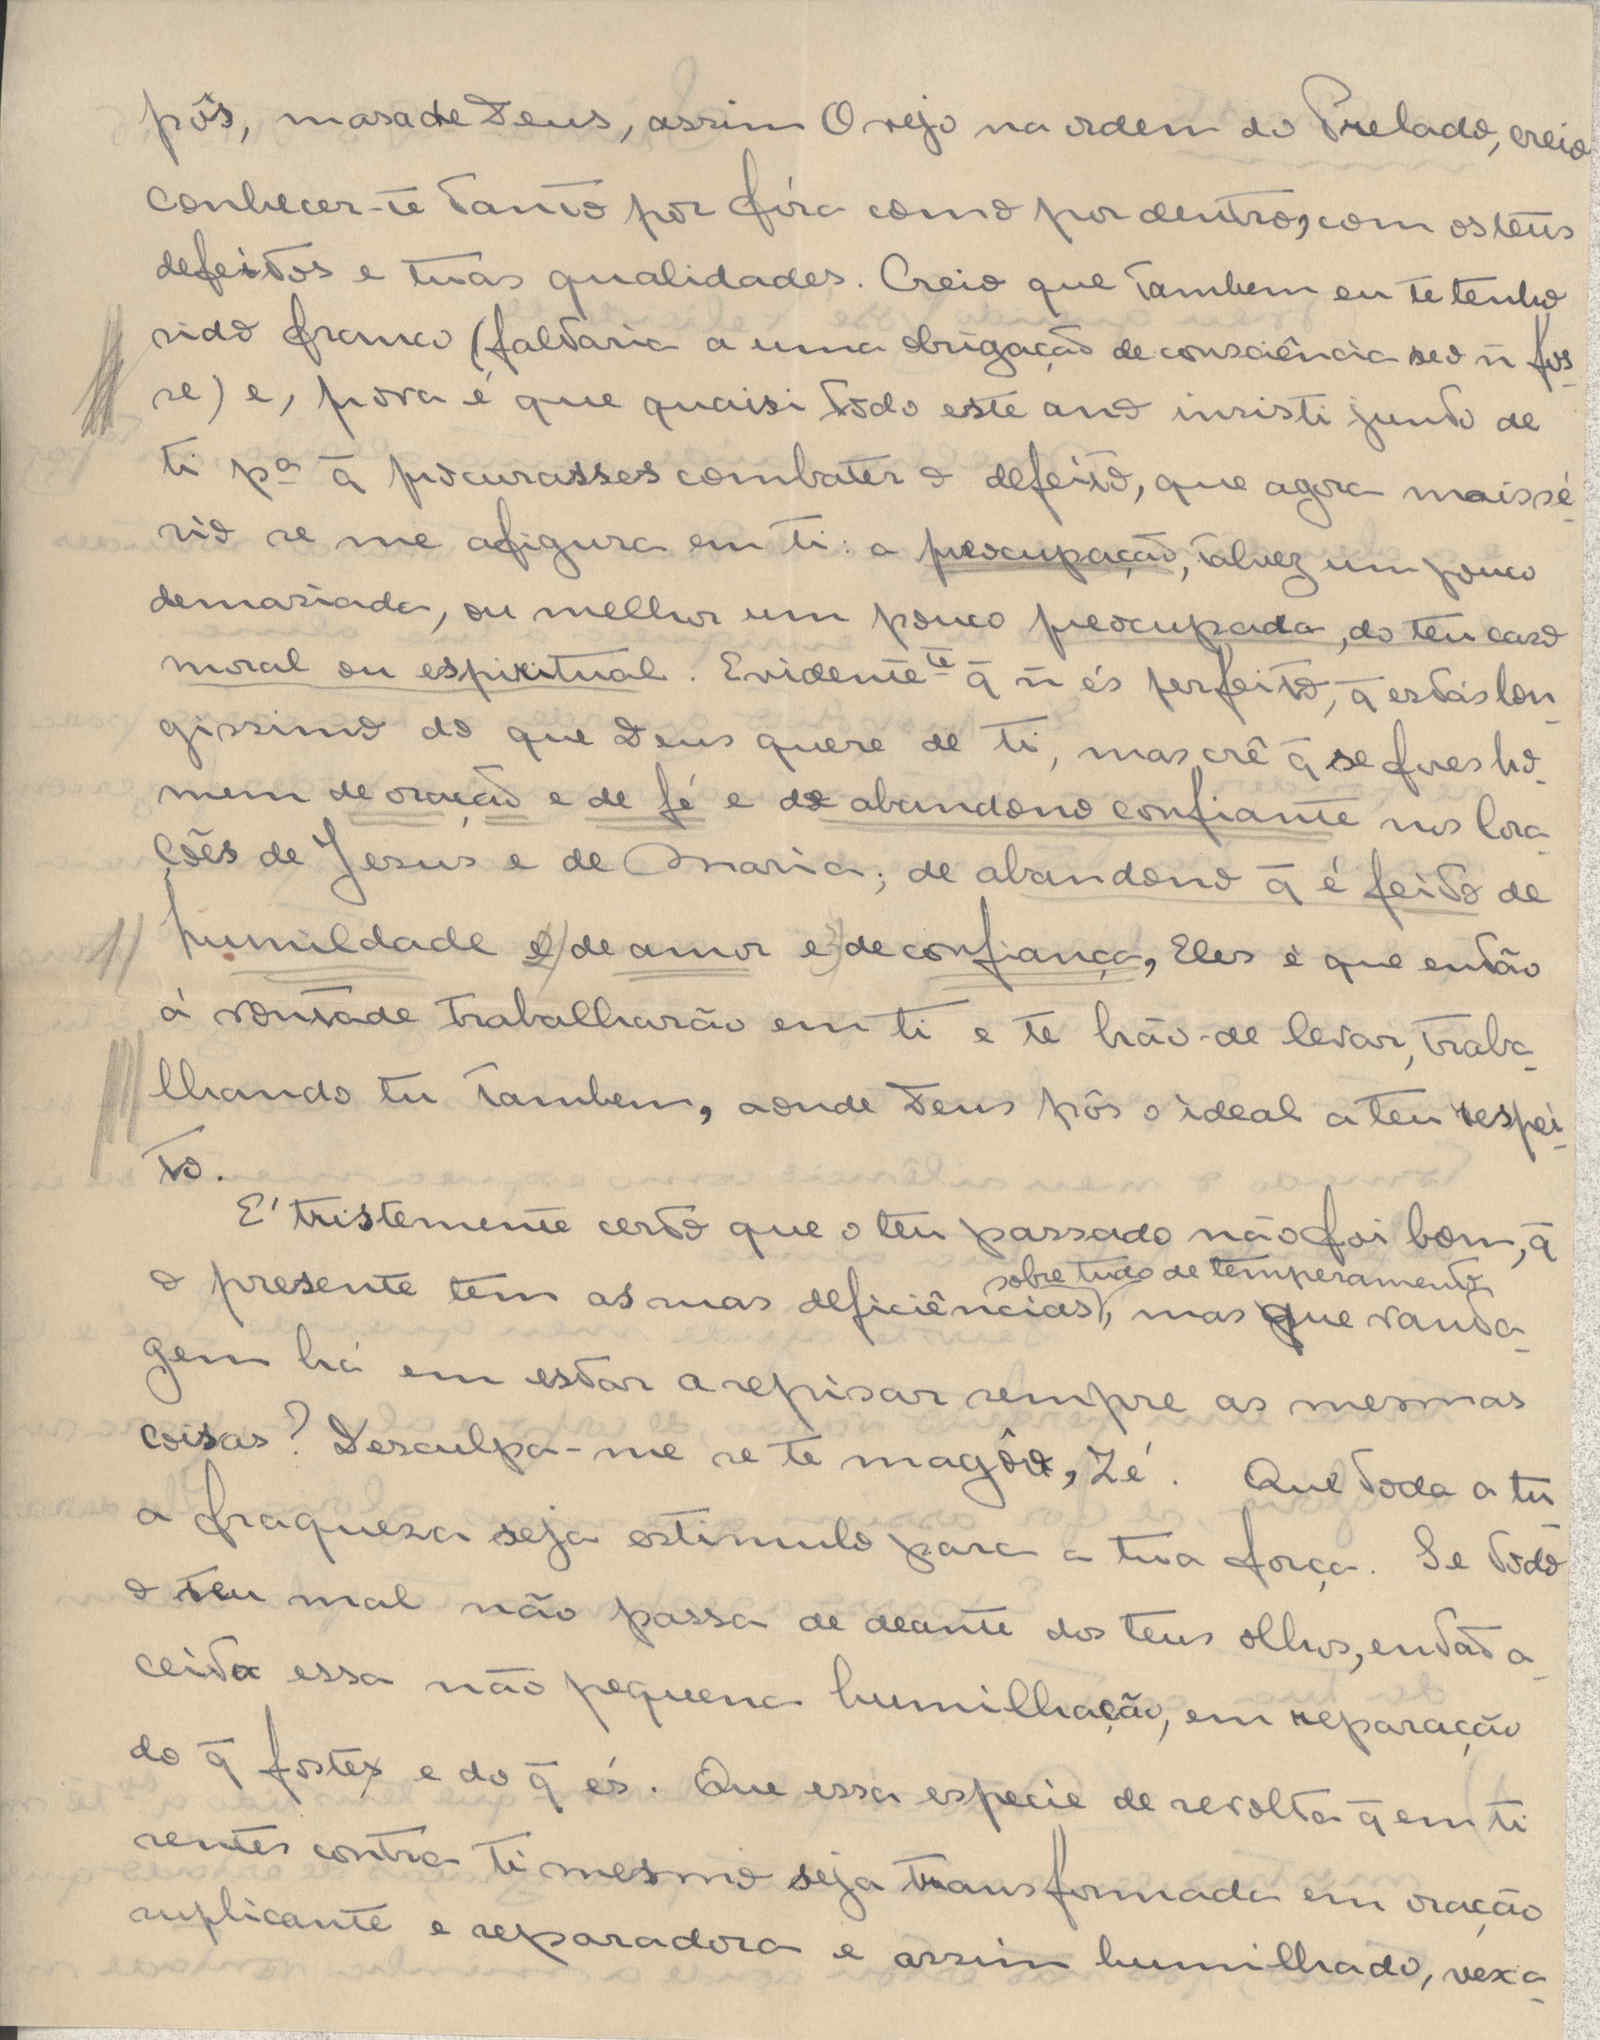 pôs, mas a de Deus, assim O vejo na ordem do Prelado, creio
conhecer-te tanto por fóra como por dentro, com os teus
defeitos e tuas qualidades. Creio que tambem eu te tenho
sido franco (faltaria a uma obrigação de consciência se o ñ fos-
se) e, prova é que quaisi todo este ano insisti junto de
ti pª q̄ procurasses combater o defeito, que agora mais sé-
rio se me afigura em ti: a preocupação, talvez um pouco
demasiada, ou melhor um pouco preocupada, do teu caso
moral ou espiritual. Evidenteᵗᵉ q̄ ñ és perfeito, q̄ estás lon-
gissimo do que Deus quere de ti, mas crê q̄ se fores ho-
mem de oração e de fé e de abandono confiante nos Cora-
ções de Jesus e de Maria; de abandono q̄ é feito de
humildade e 2) de amor e 3) de confiança, Eles é que então
á vontade trabalharão em ti e te hão-de levar, traba-
lhando tu tambem, aonde Deus pôs o ideal a teu respei-
to.
E' tristemente certo que o teu passado não foi bom, q̄
sobre tudo de temperamento
o presente tem as suas deficiências, mas que vanta-
gem há em estar a repisar sempre as mesmas
coisas? Desculpa-me se te magôo, Zé. Que toda a tu-
a fraqueza seja estimulo para a tua força. Se todo
o teu mal não passa de deante dos teus olhos, então a-
ceita essa não pequena humilhação, em reparação
do q̄ foste e do q̄ és. Que essa especie de revolta q̄ em ti
sentes contra ti mesmo seja transformada em oração
suplicante e reparadora e assim humilhado, vexa-